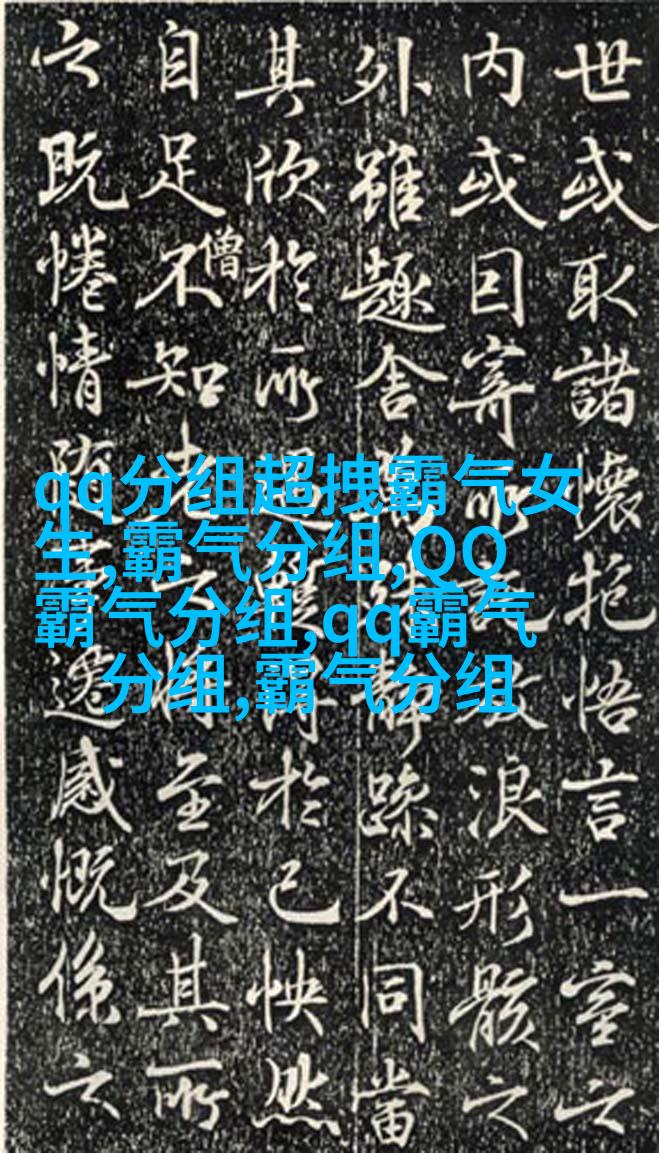 世或取諸懷抱悟言一室之
内或因寄所託放浪形骸之
外雖趣舍萬殊靜躁不同當
其欣於所遇蹔得於己怏然
自足不知老之將至及其所
僧
之既惓情隨事遷感慨係之
qq分组超拽霸气女
生,霸气分组,QQ
霸气分组,qq霸气
分组,霸气分组